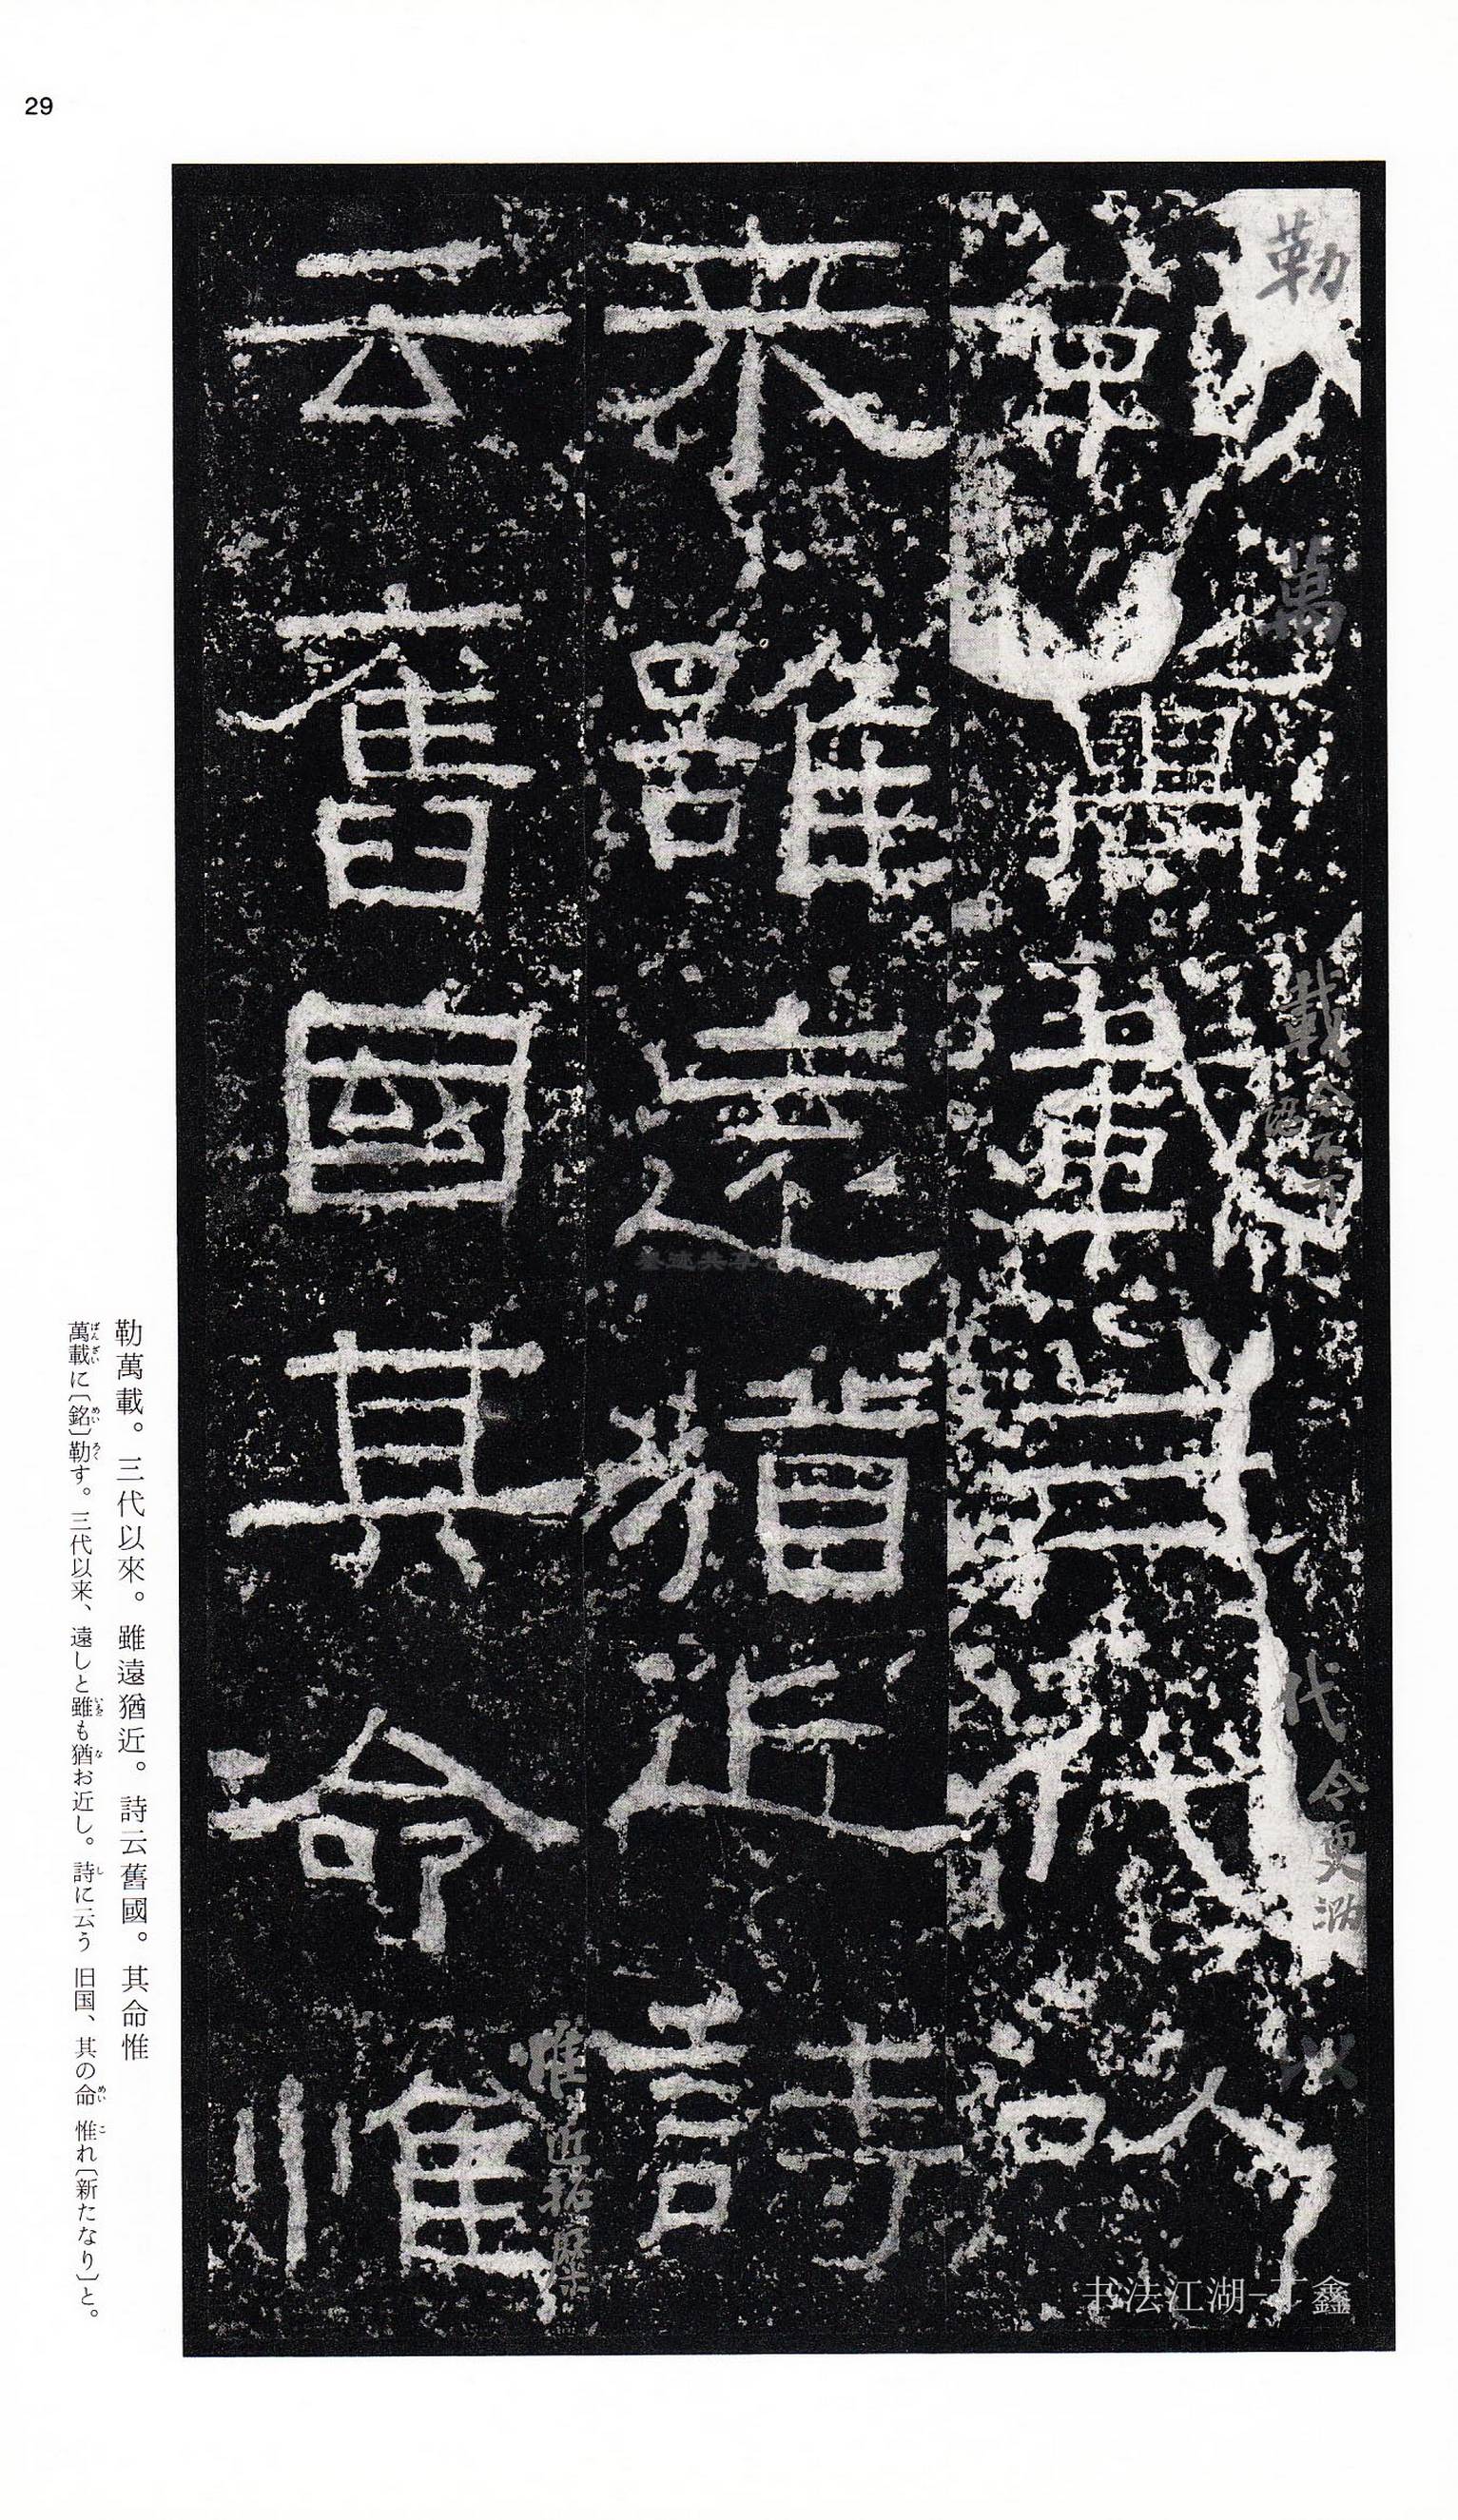 29
勒
萬
載
代今更泐
以
勒萬載三代以
来雖遠猶近詩
惟近拓糜
云舊國其命惟
书法江湖-丁鑫
勒萬載。三代以來。雖遠猶近。詩云舊國。其命惟
萬載に〔銘〕勒す。三代以来、遠しと雖も猶お近し。詩に云う 旧国、其の命 惟れ〔新たなり〕と。